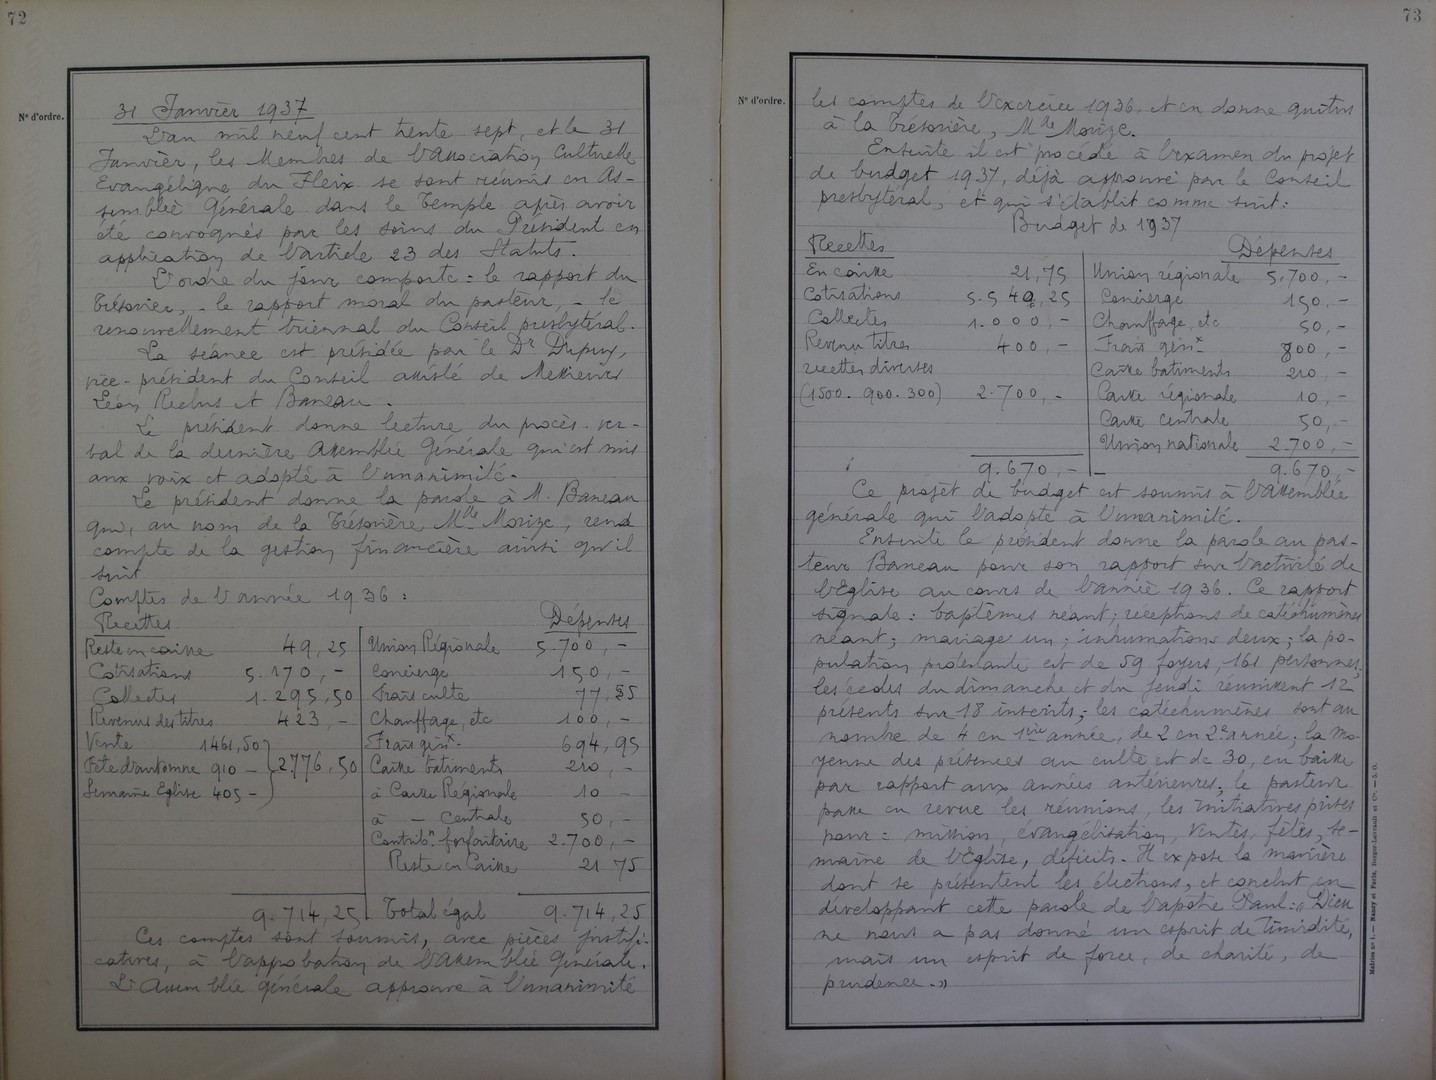 72
N° d'ordre.
31 Janvier 1937
L'an mil neuf cent trente sept, et le 31
Janvier, les Membres de l'association Cultuelle
Evangélique du Fleix se sont réunis en As-
semblée Générale dans le Temple après avoir
été convoqués par les soins du Président en
application de l'article 23 des Statuts.
L'ordre du jour comporte : le rapport du
Trésorier, - le rapport moral du pasteur, - le
renouvellement triennal du Conseil presbytéral.
La séance est présidée par le Dr Dupuy,
vice-président du Conseil assisté de Messieurs
Léon Reclus et Baneau.
Le président donne lecture du procès-ver-
bal de la dernière Assemblée Générale qui est mis
aux voix et adopté à l'unanimité.
Le président donne la parole à M. Baneau
qui, au nom de la Trésorière Mlle Morize, rend
compte de la gestion financière ainsi qu'il
suit
Comptes de l'année 1936 :
Recettes Dépenses
Reste en caisse 49,25 Union Régionale 5.700,-
Cotisations 5.170,- Concierge 150,-
Collectes 1.295,50 Frais culte 77,55
Revenus des titres 423,- Chauffage, etc 100,-
Vente 1461,50 Frais génx 694,95
Fête d'automne 910 - 2.776,50 Caisse bâtiments 210,-
Semaine Eglise 405 - à Caisse Régionale 10 -
à - Centrale 50,-
Contribn forfaitaire 2.700,-
Reste en Caisse 21 75
9.714,25 Total égal 9.714,25
Ces comptes sont soumis, avec pièces justifi-
catives, à l'approbation de l'Assemblée Générale.
L'Assemblée générale approuve à l'unanimité
73
N° d'ordre.
les comptes de l'exercice 1936 et en donne quitus
à la Trésorière, Mlle Morize.
Ensuite il est procédé à l'examen du projet
de budget 1937, déjà approuvé par le Conseil
presbytéral, et qui s'établit comme suit :
Budget de 1937
Recettes Dépenses
En caisse 21,75 Union régionale 5.700,-
Cotisations 5.549,25 Concierge 150,-
Collectes 1.000,- Chauffage, etc 50,-
Revenu titres 400,- Frais génx 800,-
recettes diverses Caisse bâtiments 210,-
(1500. 900. 300) 2.700,- Caisse régionale 10,-
Caisse centrale 50,-
Union nationale 2.700,-
9.670,- 9.670,-
Ce projet de budget est soumis à l'Assemblée
générale qui l'adopte à l'unanimité.
Ensuite le président donne la parole au pas-
teur Baneau pour son rapport sur l'activité de
l'Eglise au cours de l'année 1936. Ce rapport
signale : baptêmes néant ; réceptions de catéchumènes
néant ; mariage un ; inhumations deux ; la po-
pulation protestante est de 59 foyers, 161 personnes ;
les écoles du dimanche et du jeudi réunissent 12
présents sur 18 inscrits ; les catéchumènes sont au
nombre de 4 en 1ère année, de 2 en 2e année ; la mo-
yenne des présences au culte est de 30, en baisse
par rapport aux années antérieures ; le pasteur
passe en revue les réunions, les initiatives prises
pour : mission, évangélisation, ventes, fêtes, se-
maine de l'Eglise, déficits. Il expose la manière
dont se présentent les élections, et conclut en
développant cette parole de l'apôtre Paul : « Dieu
ne nous a pas donné un esprit de timidité,
mais un esprit de force, de charité, de
prudence. »
Modèle n° 1. — Nancy et Paris, Berger-Levrault et Cie. — J. O.